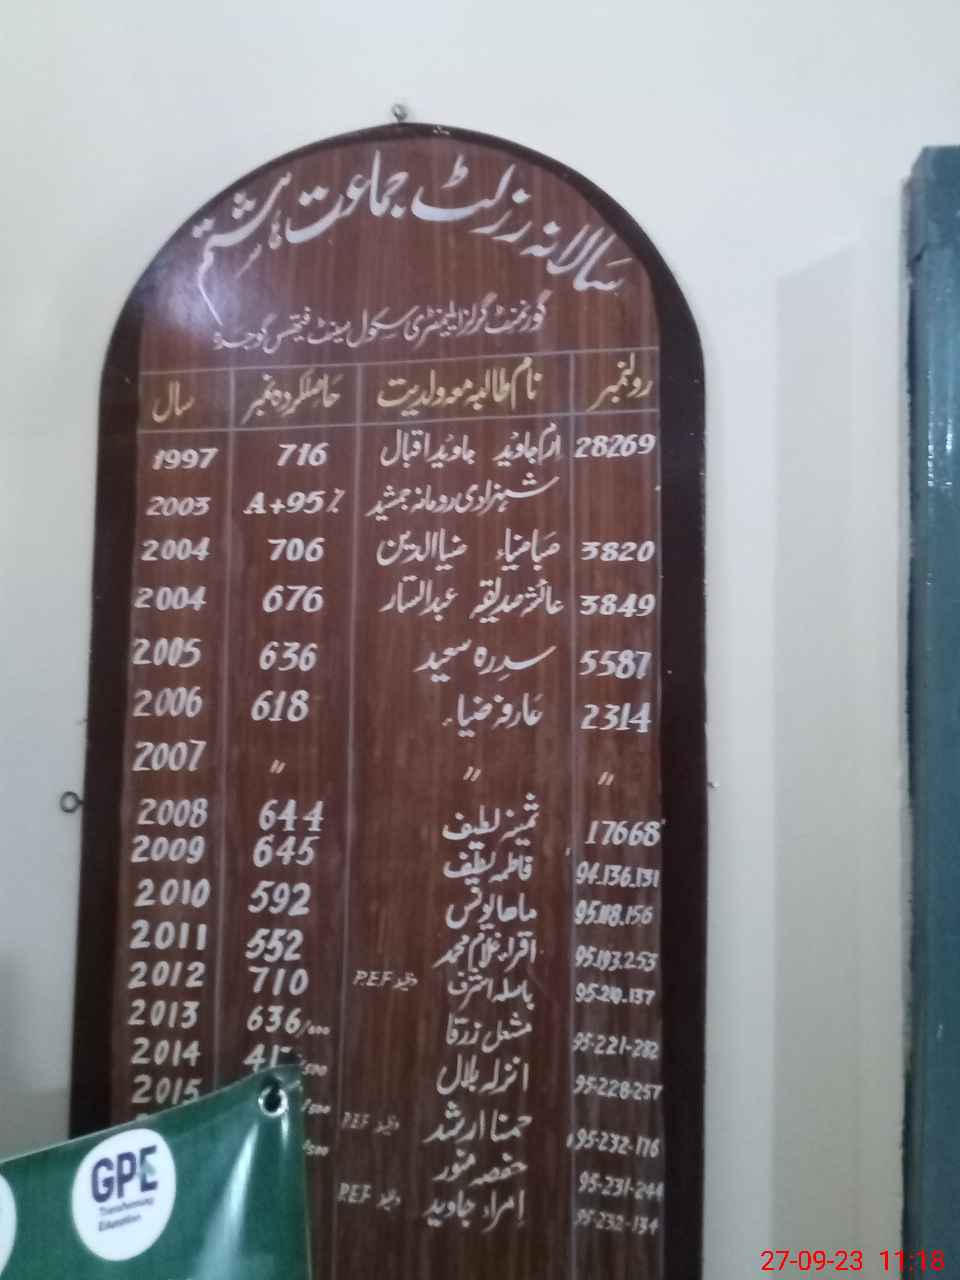 سالانہ رزلٹ جماعت ہشتم
گورنمنٹ گرلز ایلیمنٹری سکول سینٹ فیتھس گوجرہ
رولنمبر نام طالبہ معہ ولدیت حاصلکردہ نمبر سال
28269 ارم جاوید جاوید اقبال 716 1997
شہزادی رومانہ جمشید A+95% 2003
3820 صبا ضیاء ضیا الدین 706 2004
3849 عائشہ صدیقہ عبدالستار 676 2004
5587 سدرہ سعید 636 2005
2314 عارفہ ضیاء 618 2006
〃 〃 〃 2007
17668 ثمینہ لطیف 644 2008
94.136.131 فاطمہ لطیف 645 2009
95.118.156 ماہا یونس 592 2010
95.193.253 اقراء غلام محمد 552 2011
95-210-137 باسلہ اشرف وظیفہ P.E.F 710 2012
95-221-282 مشعل زرقا 636/800 2013
95-228-257 انزلہ بلال /500 2014
95-232-176 حمنا ارشد وظیفہ P.E.F /500 2015
95-231-244 حفصہ منور /500
95-232-134 امراء جاوید وظیفہ P.E.F
GPE
Transforming
Education
27-09-23 11:18